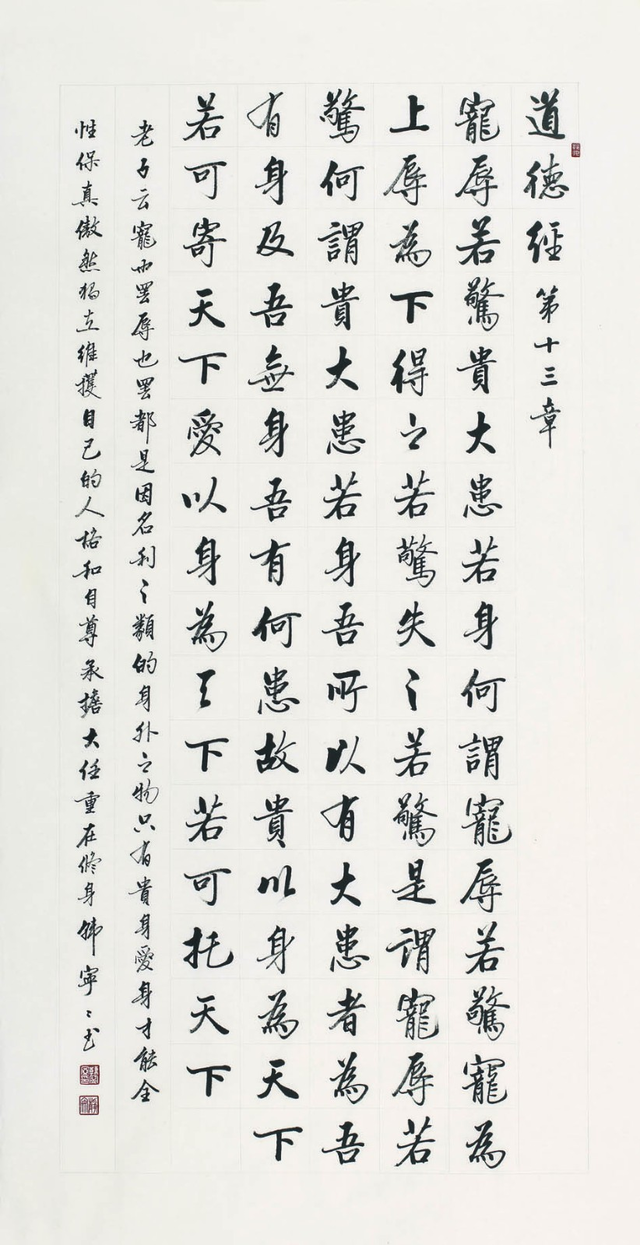 道德經 第十三章
寵辱若驚貴大患若身何謂寵辱若驚寵為
上辱為下得之若驚失之若驚是謂寵辱若
驚何謂貴大患若身吾所以有大患者為吾
有身及吾無身吾有何患故貴以身為天下
若可寄天下愛以身為天下若可托天下
老子云寵也罢辱也罢都是因名利之類的身外之物只有貴身愛身才能全
性保真傲然獨立維護自己的人格和自尊承擔大任重在修身韩寧〻书